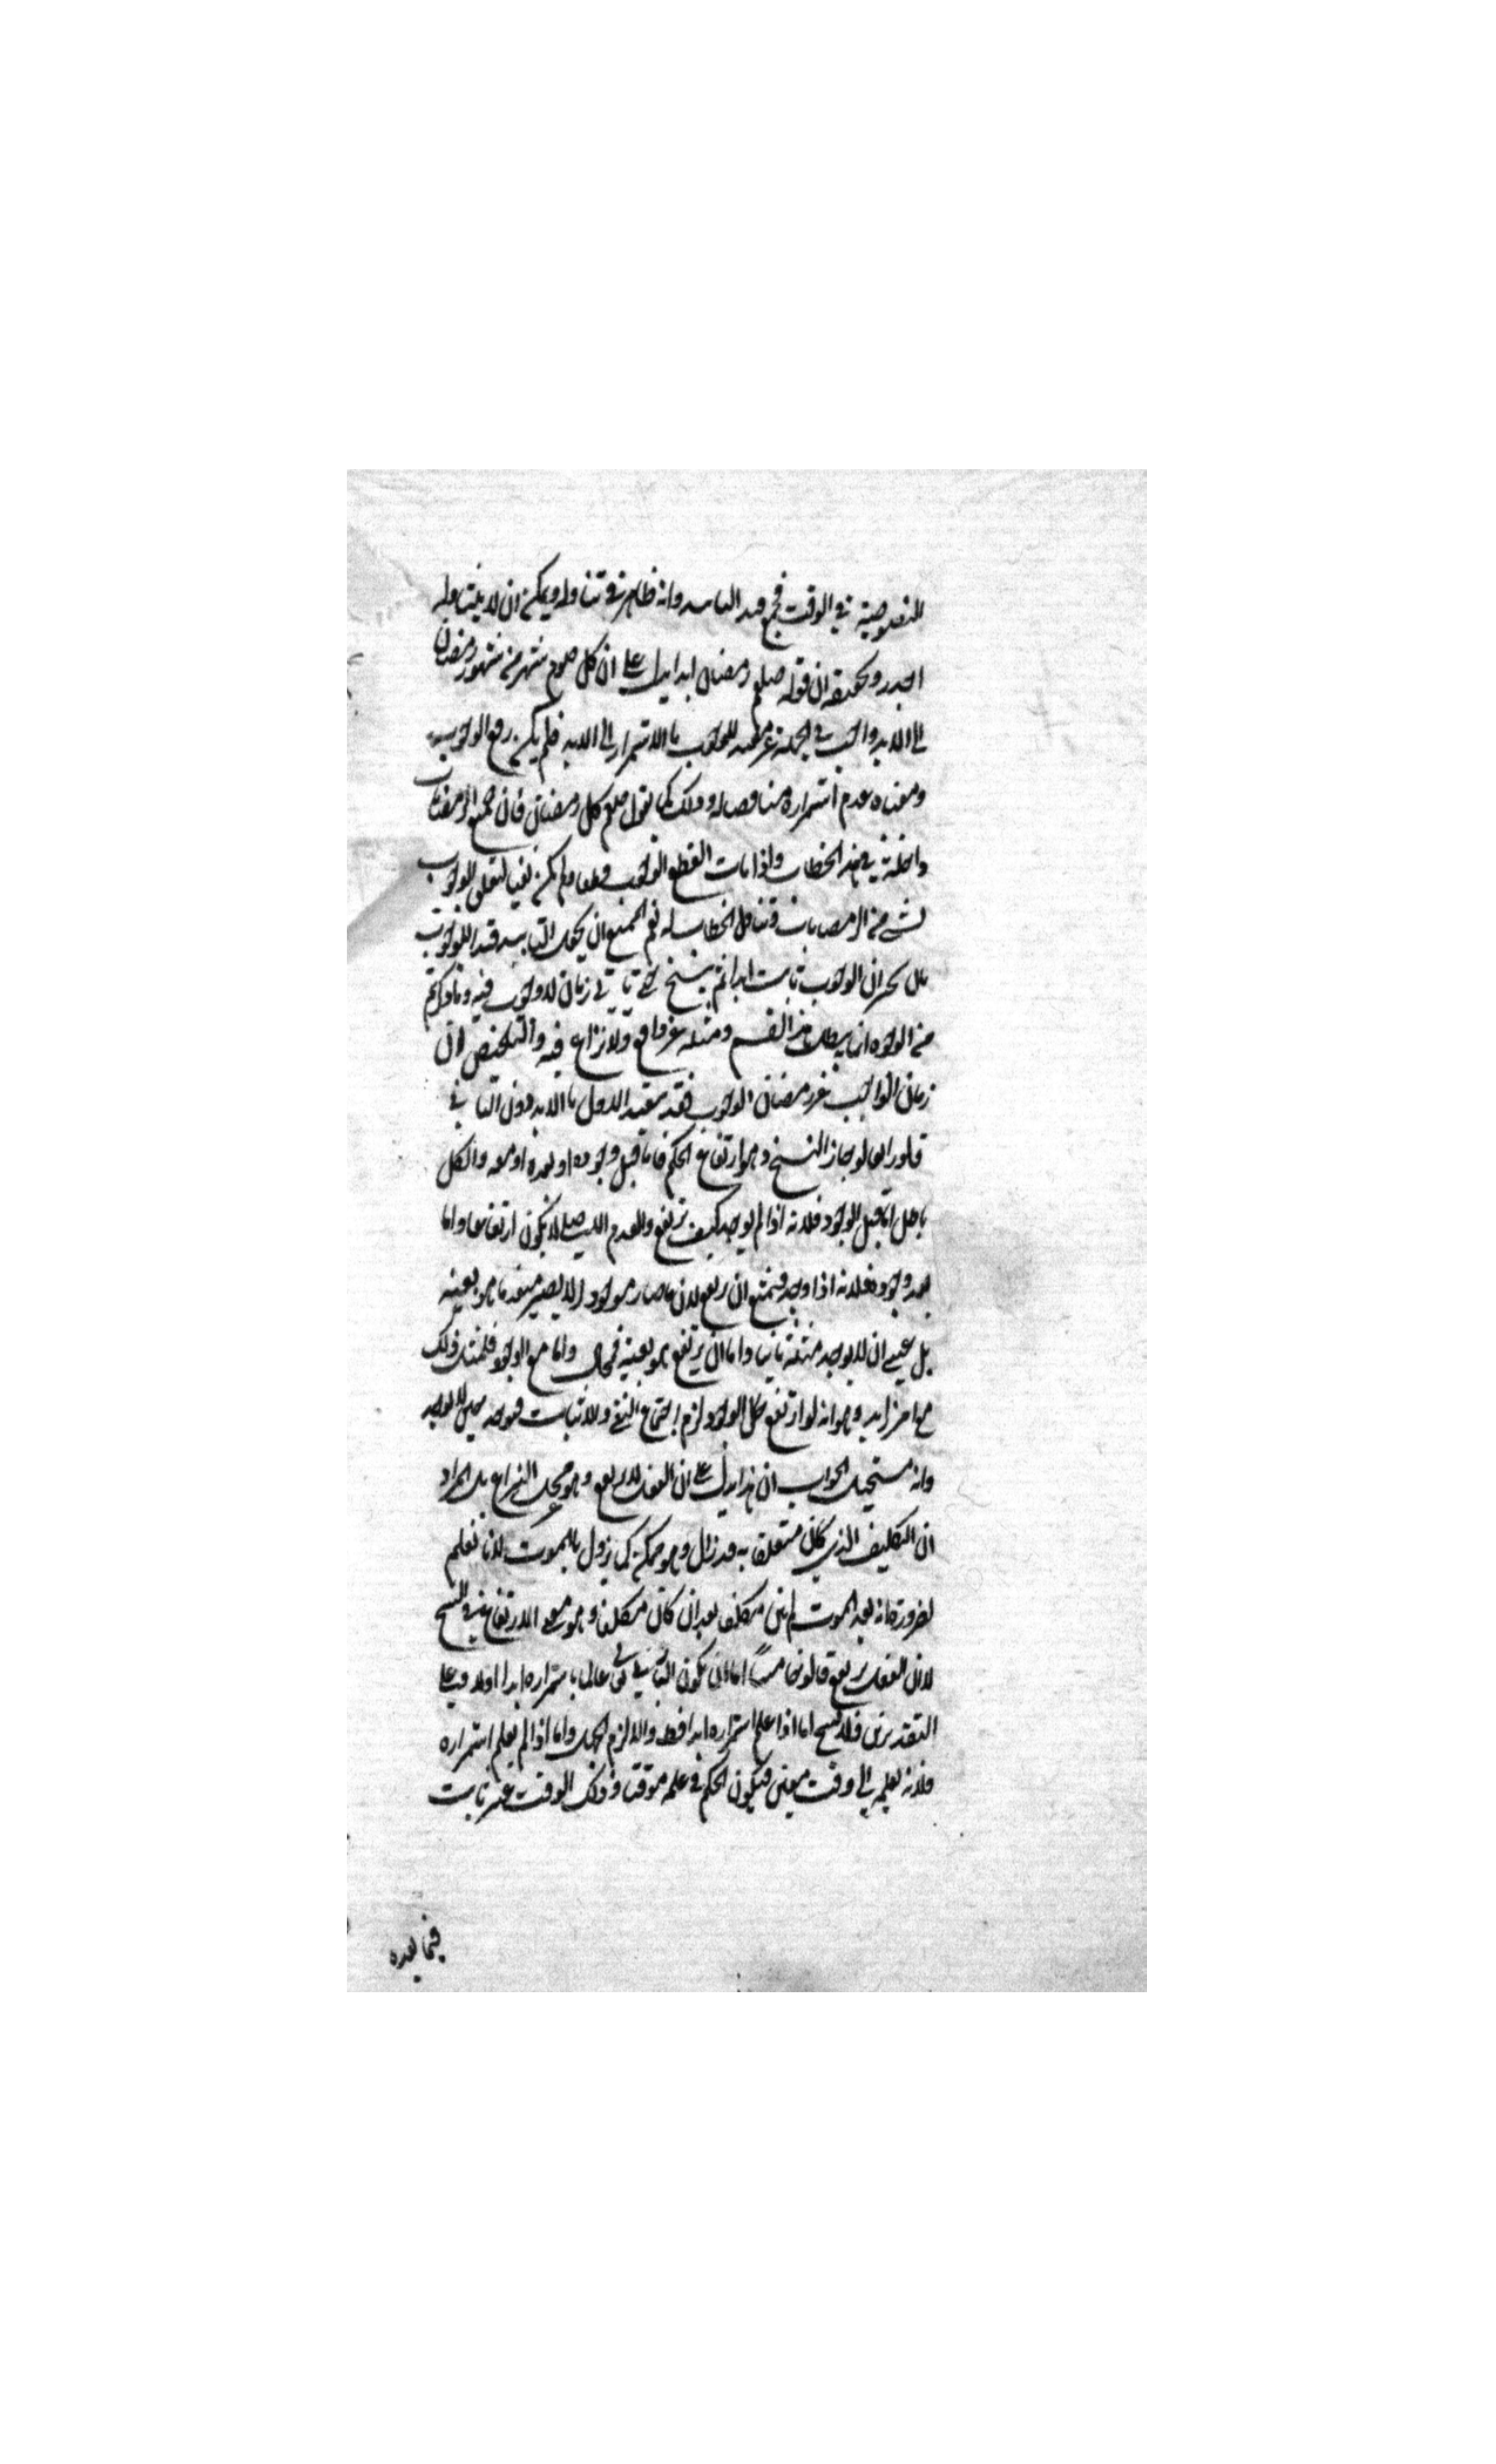 المنصوصية في الوقت فجمع قيد التابيد وانه ظاهر في تناوله ويمكن ان لا يتناوله
الجدر وتحقيقه ان قوله صلعم رمضان ابدا يدل على ان كل صوم شهر من شهور رمضان
الى الابد واجب في الجملة غير مقيد للوجوب بالاستمرار الى الابد فلم يكن رفع الوجوب
ومعناه عدم استمراره مناقضا له وذلك كما تقول صلعم كل رمضان فان جميع الرمضانات
داخلة في هذا الخطاب واذا مات انقطع الوجوب قطعا ولم يكن نفيا لتعلق الوجوب
لشيء من الرمضانات وتناول الخطاب له نعم الممتنع ان يكون التابيد قيدا للوجوب
بان يخبر ان الوجوب ثابت ابدا ثم ينسخ حتى ياتي زمان لا وجوب فيه وما ذكرتم
من الوجوه انما يبطل هذا القسم ومثله غير واقع ولا نزاع فيه والتلخيص ان
زمان الواجب غير زمان الوجوب فقد يتقيد الاول بالابد دون الثاني
قلو رابعا لو جاز النسخ وهو ارتفاع الحكم فاما قبل وجوده او بعده او معه والكل
باطل اما قبل الوجود فلانه اذا لم يوجد كيف يرتفع والعدم الاصلي لا يكون ارتفاعا واما
بعد وجوده فلانه اذا وجد فيمتنع ان يرتفع لان ما صار موجودا لا يصير منعدما هو بعينه
بل عسى ان لا يوجد مثله ثانيا واما ان يرتفع هو بعينه فمحال واما مع الوجود فلمثل ذلك
مع امر زايد وهو انه لو ارتفع حال الوجود لزم اجتماع النفي والاثبات فيوجد حين لا يوجد
وانه مستحيل الجواب ان هذا يدل على ان الفعل لا يرتفع وهو محل النزاع بل المراد
ان التكليف الذي كان متعلقا به قد زال وهو ممكن كما يزول بالموت لانا نعلم
لضرورة انه بعد الموت لم يبق مكلفا بعد ان كان مكلفا وهو معنى الارتفاع في النسخ
لا ان الفعل يرتفع قالو خامسا اما ان يكون الباري تعالى عالما باستمراره ابدا اولا وعلى
التقديرين فلا نسخ اما اذا علم استمراره ابدا فظ والا لزم الجهل واما اذا لم يعلم استمراره
فلانه يعلمه الى وقت معين فيكون الحكم في علمه موقتا وذلك الوقت غير ثابت
فيما بعده